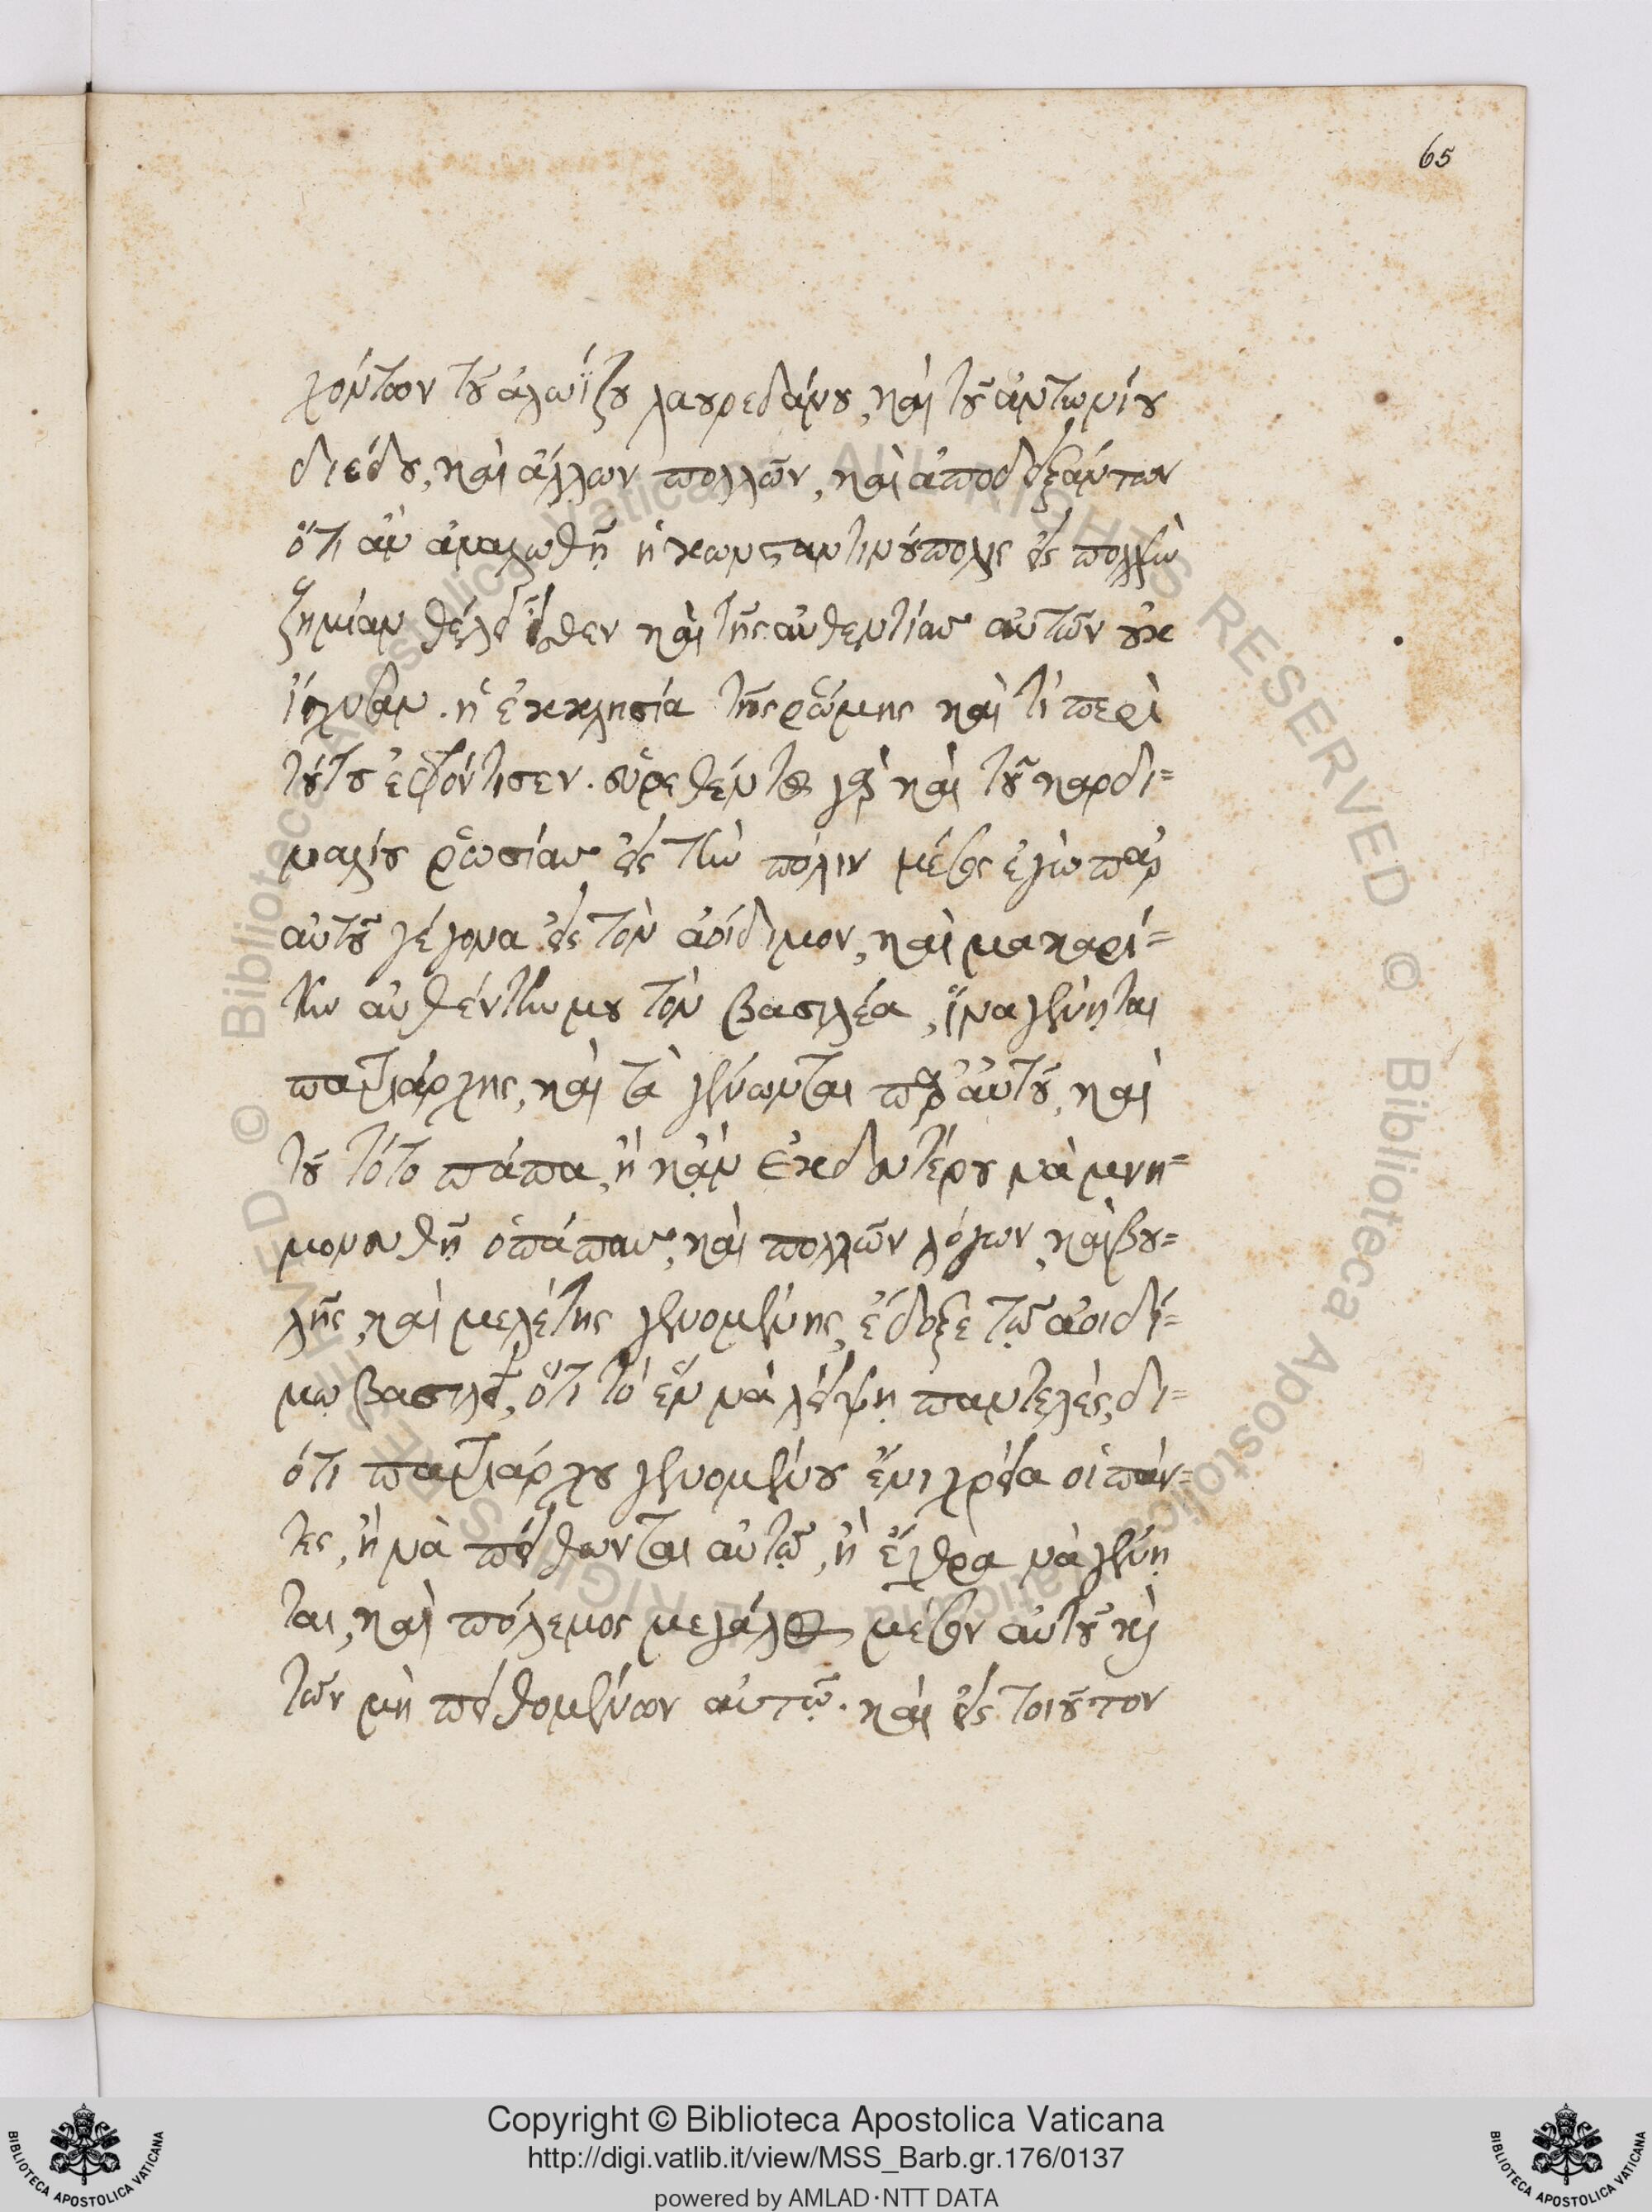 65
χόντων τοῦ ἀλωΐζου λαυρεδάνου, καὶ τοῦ ἀντωνίου
διέδου, καὶ ἄλλων πολλῶν, καὶ ἀποδειξάντων
ὅτι ἂν ἀναλωθῇ ἡ κωνσταντινούπολις εἰς πολλὴν
ζημίαν θέλει ἔσθεν καὶ τῆς αὐθεντίας αὐτῶν οὐκ
ἴσχυσαν. ἡ ἐκκλησία τῆς ῥώμης καὶ τί περὶ
τούτου ἐφρόντισεν. εὑρεθέντος γὰρ καὶ τοῦ καρδι=
ναλίου ῥωσίας εἰς τὴν πόλιν μέσος ἐγὼ παρ
αὐτοῦ γέγονα εἰς τὸν ἀοίδιμον, καὶ μακαρί=
την αὐθέντην μου τὸν βασιλέα, ἵνα γένηται
πατριάρχης, καὶ τὰ γένωνται παρ αὐτοῦ, καὶ
τοῦ τότε πάπα, ἢ κἂν ἐκ δευτέρου νὰ μνη=
μονευθῇ ὁ πάπας, καὶ πολλῶν λόγων, καὶ βου=
λῆς, καὶ μελέτης γενομένης, ἔδοξε τῷ ἀοιδί=
μῳ βασιλεῖ, ὅτι τὸ ἓν νὰ λείψῃ παντελές, δι=
ότι πατριάρχου γενομένου ἔνι χρεία οἱ πάν=
τες, ἢ νὰ πείθωνται αὐτῷ, ἢ ἔχθρα νὰ γένη
ται, καὶ πόλεμος μεγάλος μέσον αὐτοῦ καὶ
τῶν μὴ πειθομένων αὐτῷ. καὶ εἰς τοιοῦτον
Copyright © Biblioteca Apostolica Vaticana
http://digi.vatlib.it/view/MSS_Barb.gr.176/0137
powered by AMLAD·NTT DATA